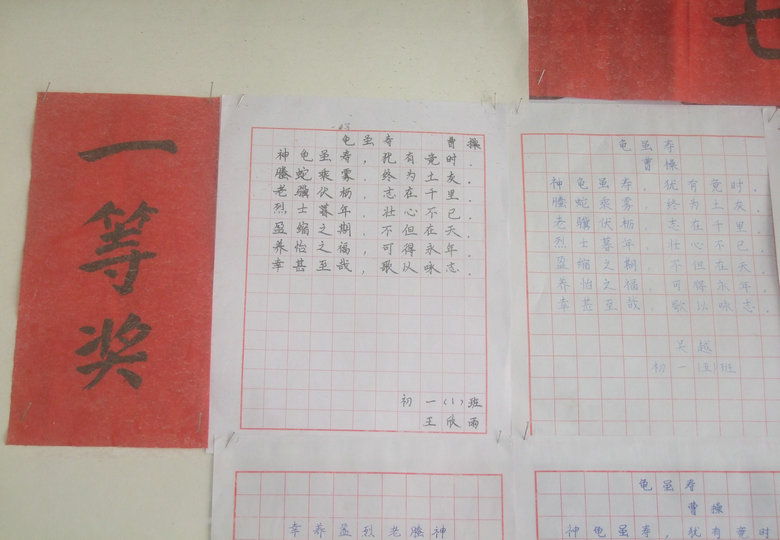 一等奖
龟虽寿 曹操
神龟虽寿，犹有竟时．
腾蛇乘雾，终为土灰．
老骥伏枥，志在千里．
烈士暮年，壮心不已．
盈缩之期，不但在天．
养怡之福，可得永年．
幸甚至哉，歌以咏志．
初一（1）班
王欣雨
龟虽寿
曹操
神龟虽寿，犹有竟时．
腾蛇乘雾，终为土灰．
老骥伏枥，志在千里．
烈士暮年，壮心不已．
盈缩之期，不但在天．
养怡之福，可得永年．
幸甚至哉，歌以咏志．
吴越
初一班
幸养盈烈老腾神
龟虽寿
曹操
神龟虽寿，犹有竟时